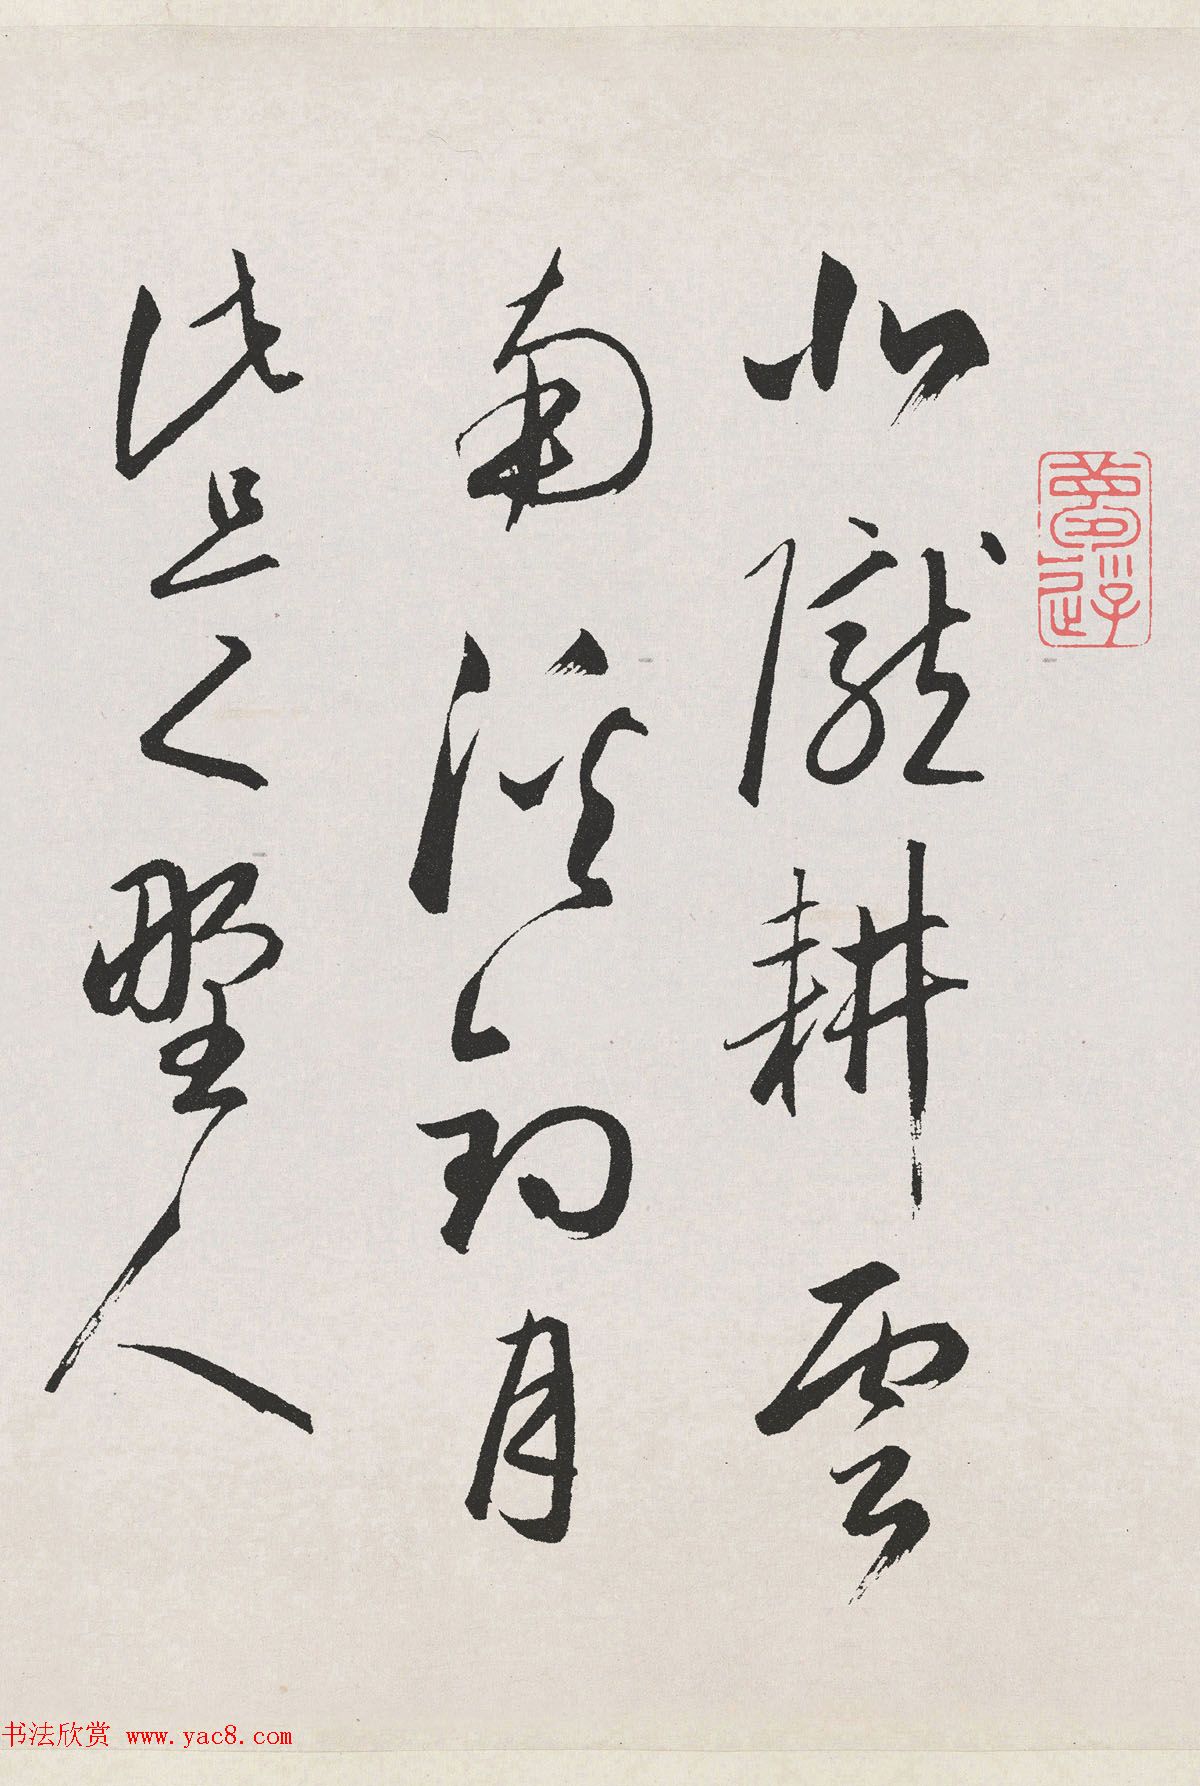 北隴耕雲
南溪釣月
此且之野人
书法欣赏 www.yac8.com